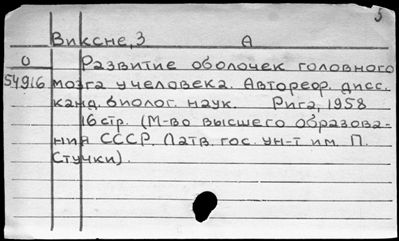 5
Виксне, З А
О Развитие оболочек головного
54916 мозга учеловека. Автореф. дисс.
канд. биолог. наук. Рига, 1958
16 стр. (М-во высшего образова-
ния СССР. Латв. гос. ун-т им. П.
Стучки).